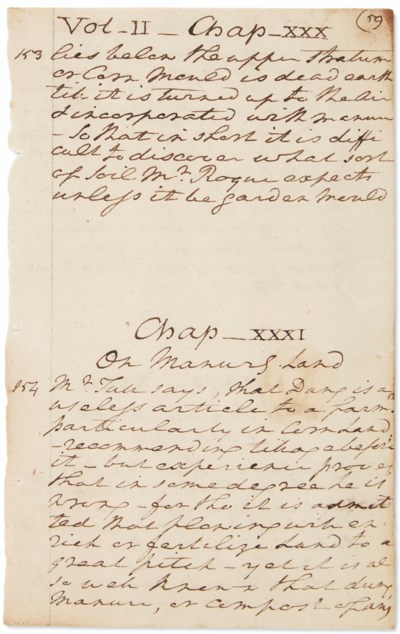 (59)
Vol-II - Chap-XXX
153 lies below the upper stratum
or Corn Mould is dead earth
till it is turned up to the Air
& incorporated with manure
- So that in short it is diffi
cult to discover what sort
of Soil Mr. Roque expects
unless it be garden Mould
Chap - XXXI
On Manurg. Land
154 Mr. Tull says, that Dung is a
useless article to a farm.
particularly in Corn Land
- recommending tillage before
it - but experience proves
that in some degree he is
wrong - for tho it is admit
ted that plowing will en
rich or fertilize Land to a
great pitch - yet it is al
so well known that dung
Manure, or Compost of any